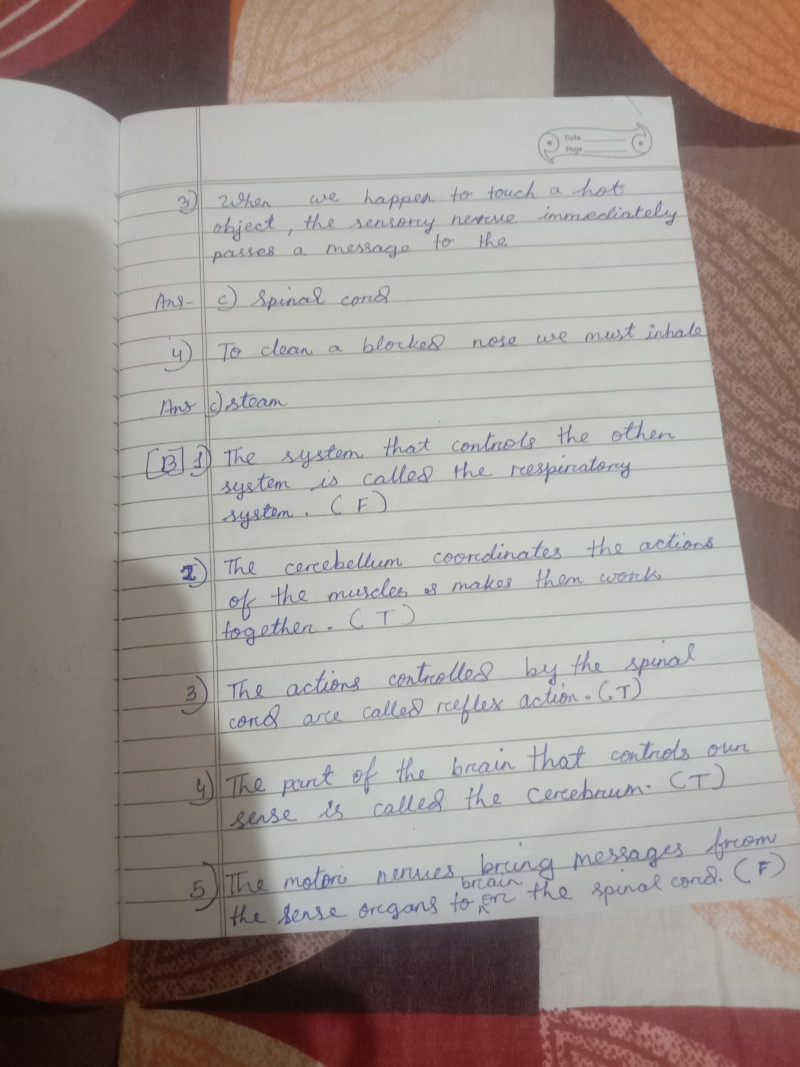 Date
Page
3) When we happen to touch a hot
object, the sensory nerve immediately
passes a message to the
Ans- c) Spinal cord
4) To clean a blocked nose we must inhale
Ans c) steam
[B] 1) The system that controls the other
system is called the respiratory
system. (F)
2) The cerebellum coordinates the actions
of the muscles & makes them work
together. (T)
3) The actions controlled by the spinal
cord are called reflex action. (T)
4) The part of the brain that controls our
sense is called the cerebrum. (T)
5) The motor nerves bring messages from
the sense organs to brain or the spinal cord. (F)